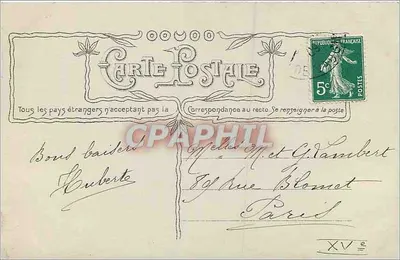 CARTE POSTALE
RÉPUBLIQUE FRANÇAISE
5c
POSTES
Tous les pays étrangers n'acceptant pas la Correspondance au recto. Se renseigner à la poste
CPAPHIL
Bons baisers
Huberte
Melles M. et G. Lambert
89 rue Blomet
Paris
XVe